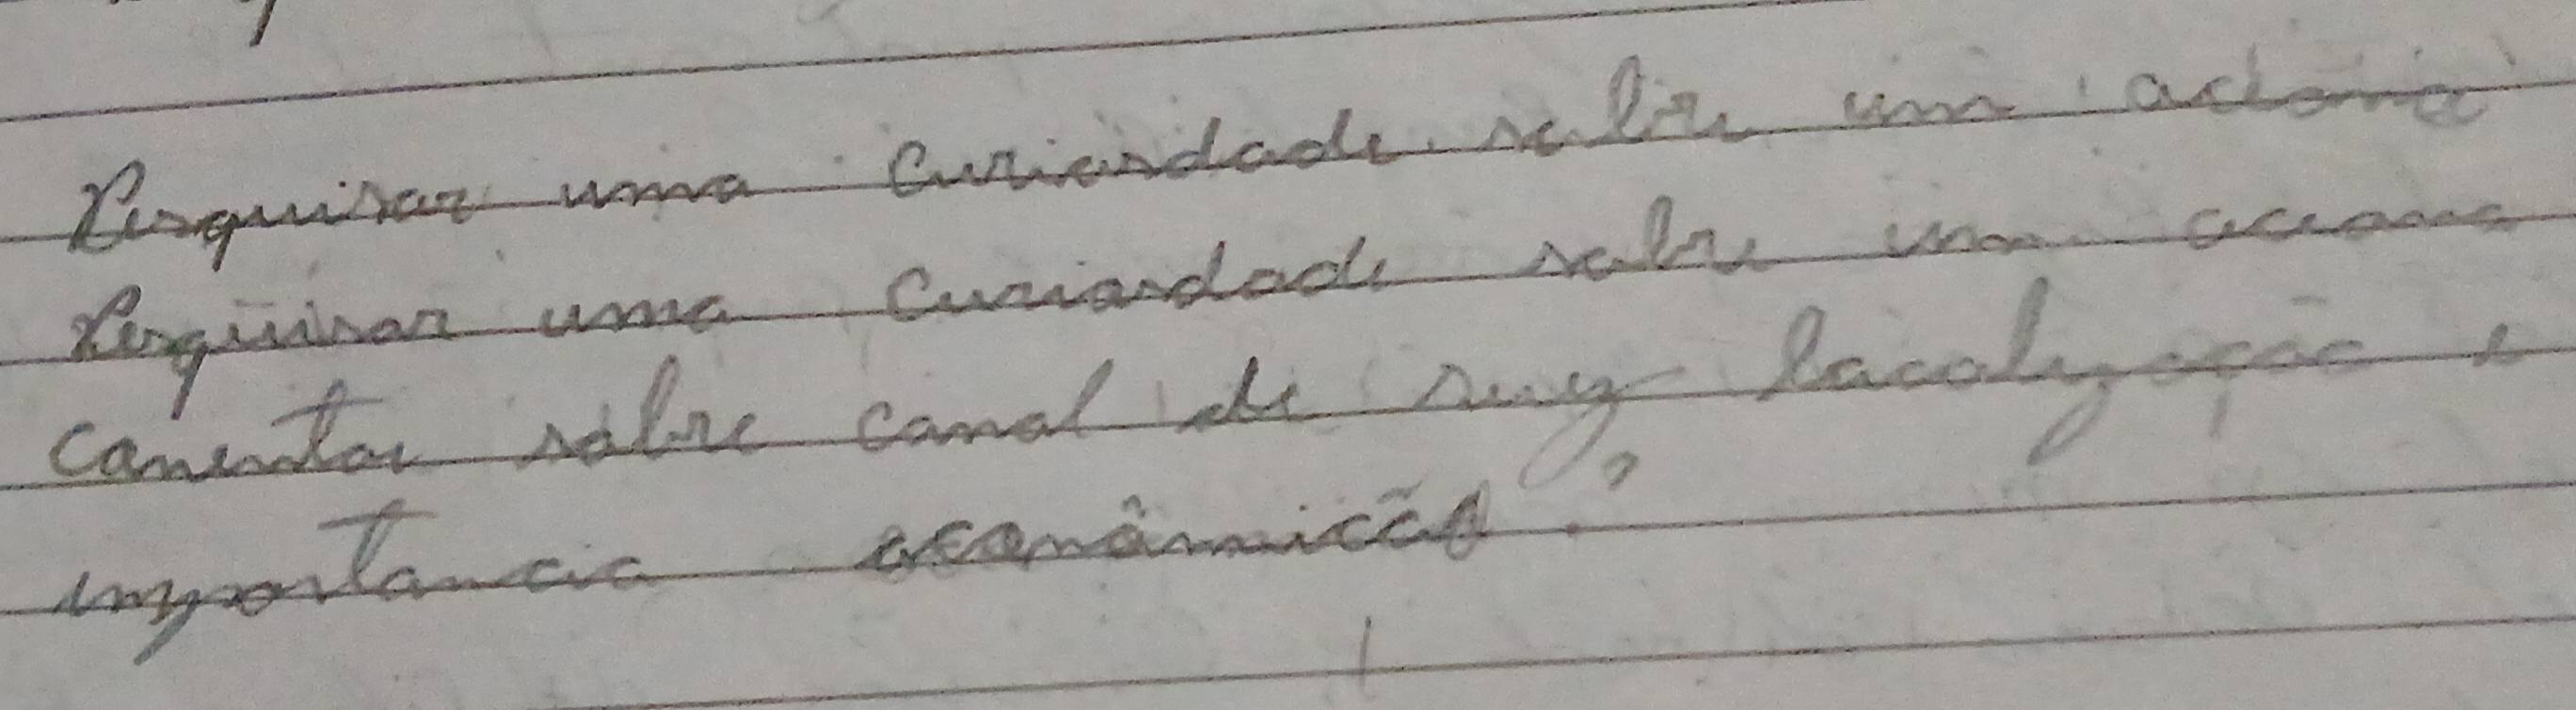 Pesquisar uma curiosdade sobre um aciona
Pesquisar uma curiosdade sobre um aciona
comentar sobre canal de suez, localização e
importancia econômicas.